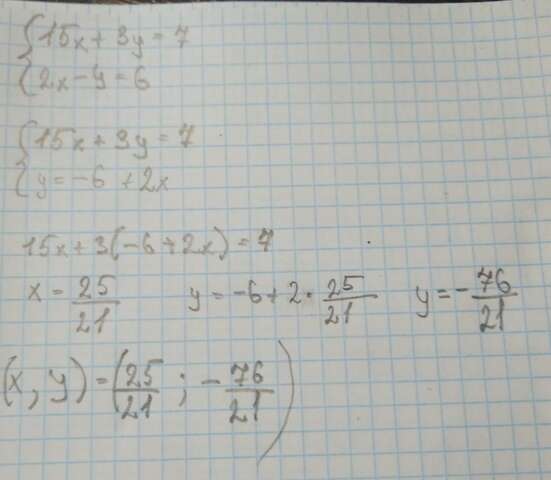 {15x + 3y = 7
{2x - y = 6
{15x + 3y = 7
{y = -6 + 2x
15x + 3(-6 + 2x) = 7
x = 25/21 y = -6 + 2 · 25/21 y = -76/21
(x, y) = (25/21 ; -76/21)